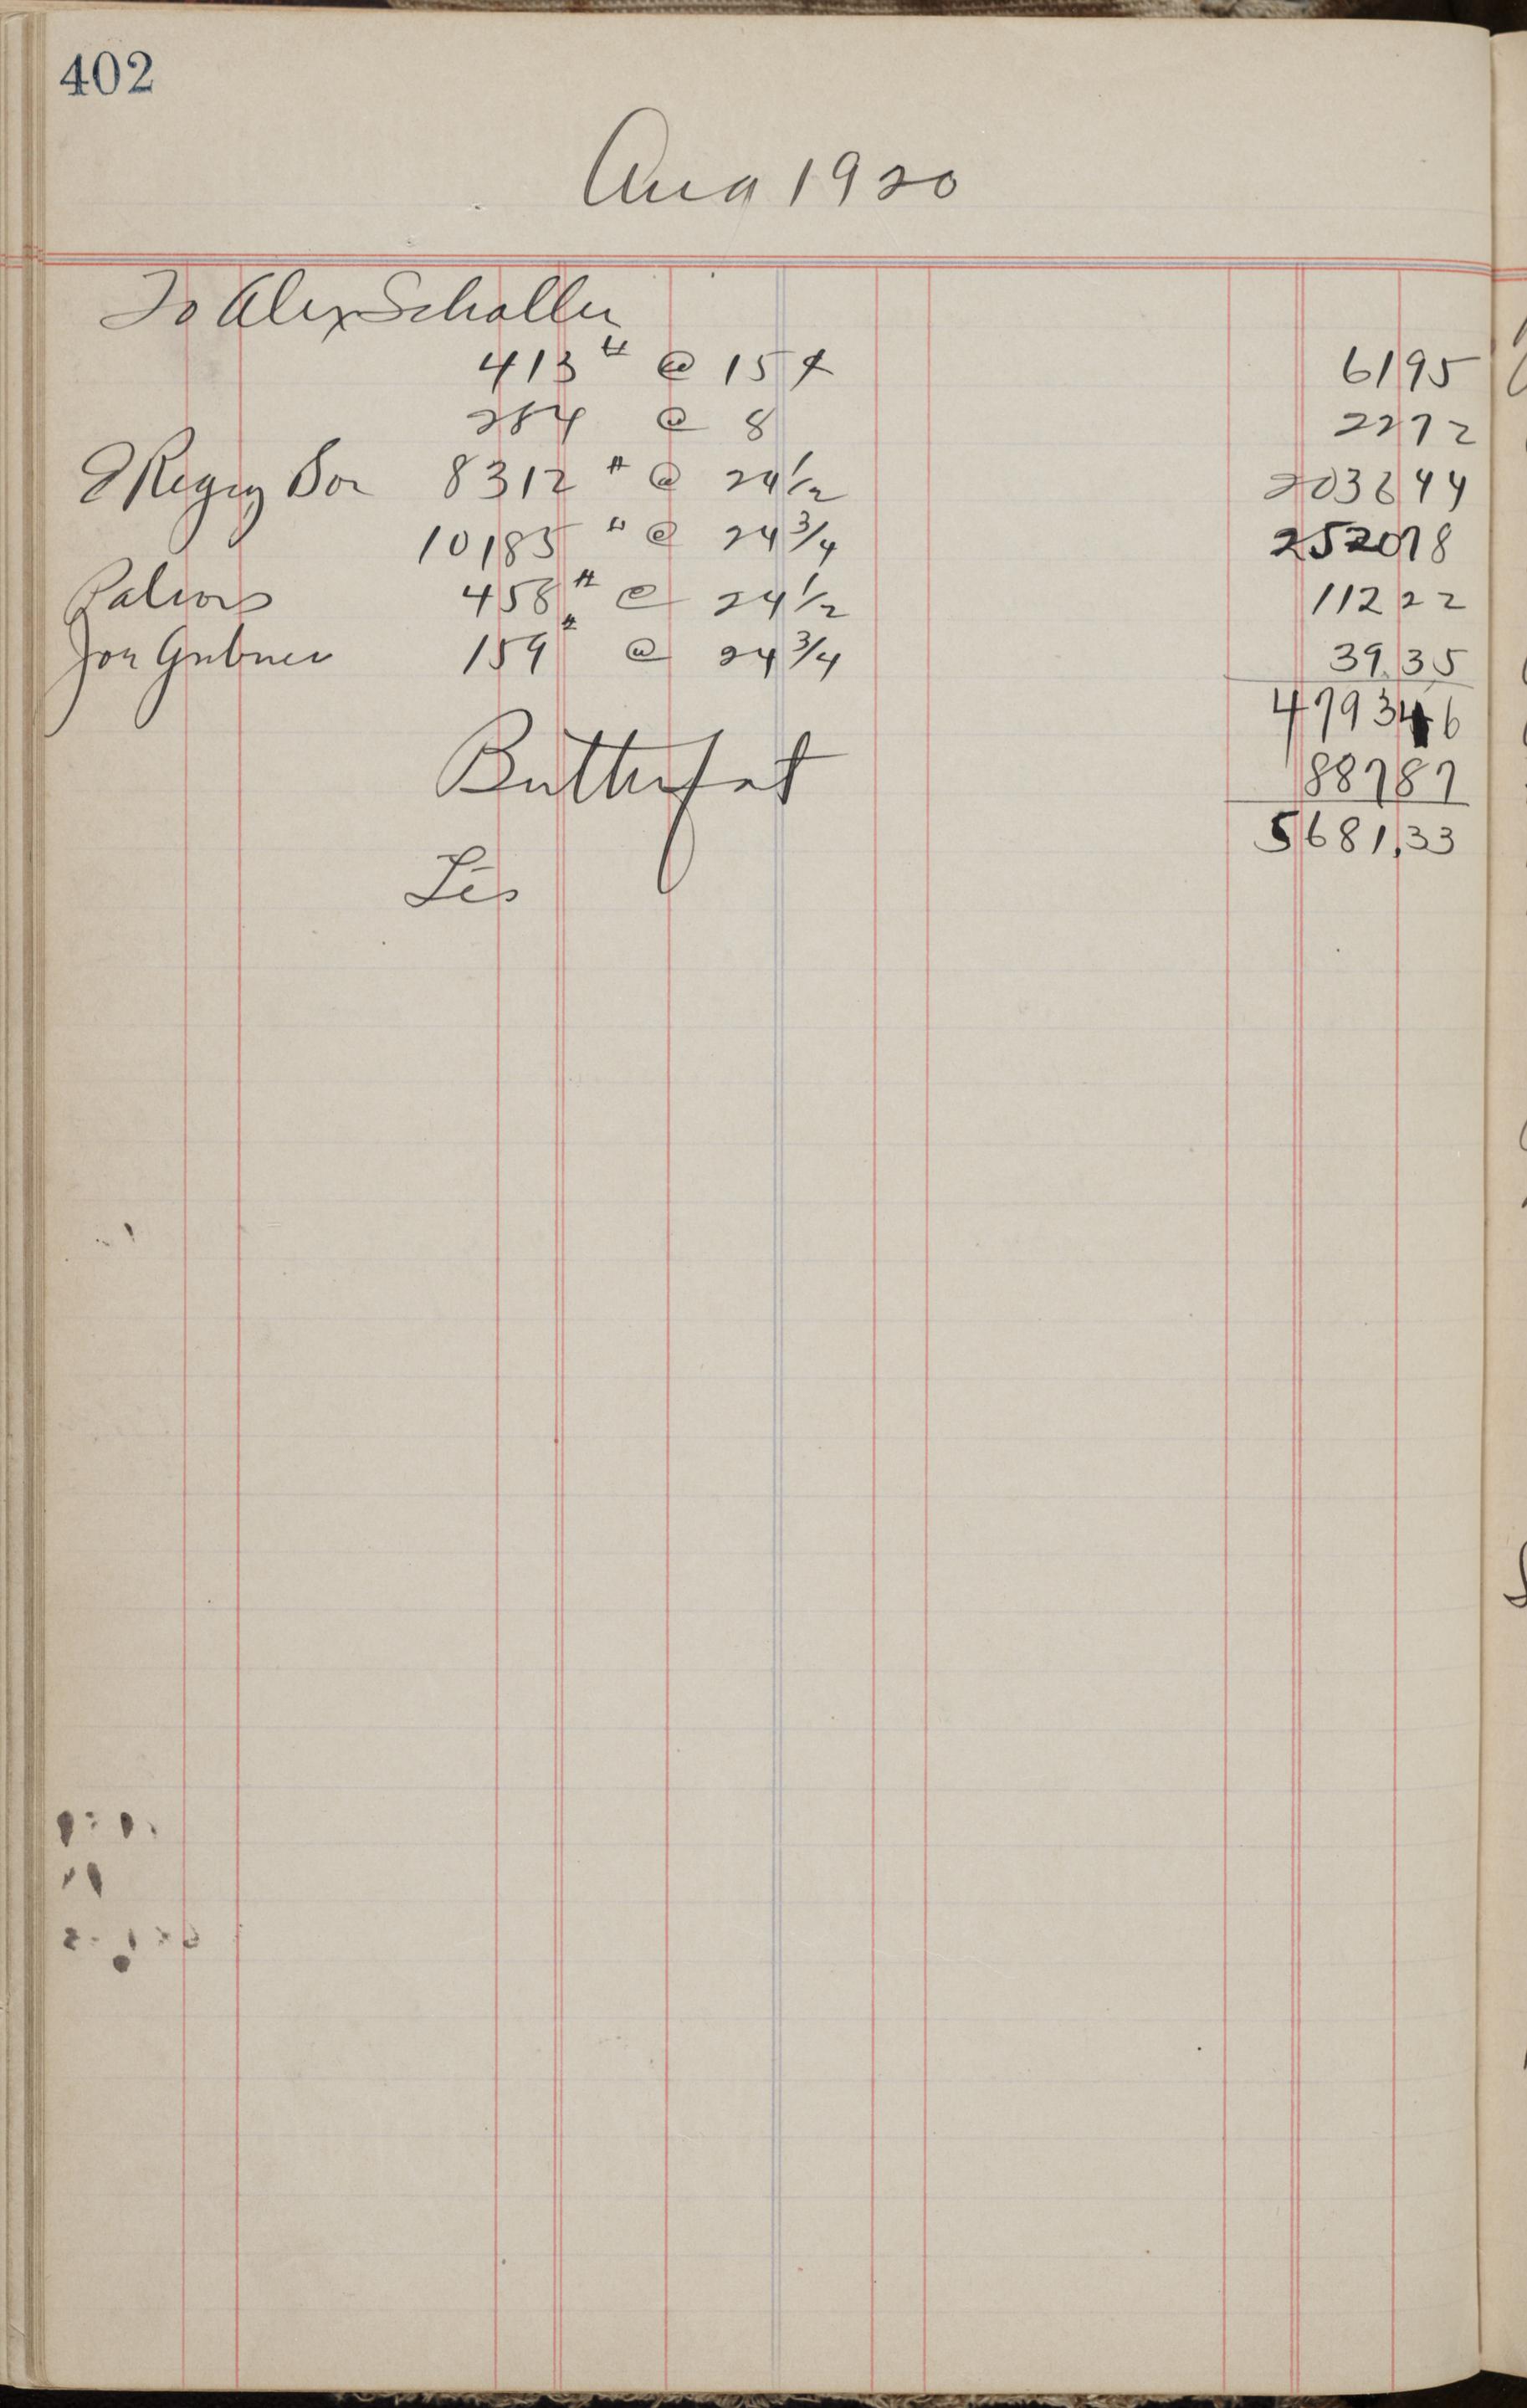 402
Aug 1920
To Alex Schaller
413 # @ 15 ¢ 6195
284 @ 8 2272
8312 # @ 24 1/2 203644
10185 # @ 24 3/4 252078
Patrons 458 # @ 24 1/2 11222
Jon Gubner 159 # @ 24 3/4 39.35
479346
Butterfat 88787
5681.33